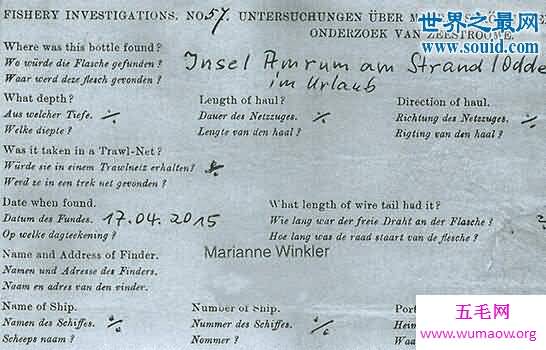 FISHERY INVESTIGATIONS. NO. 57. UNTERSUCHUNGEN ÜBER M
世界之最网
www.souid.com
ONDERZOEK VAN ZEESTROOME.
Where was this bottle found?
Wo würde die Flasche gefunden?
Waar werd deze flesch gevonden?
Insel Amrum am Strand/Odde
im Urlaub
What depth? Length of haul? Direction of haul.
Aus welcher Tiefe. ./. Dauer des Netzzuges. ./. Richtung des Netzzuges. ./.
Welke diepte? Lengte van den haal? Rigting van den haal?
Was it taken in a Trawl-Net?
Würde sie in einem Trawlnetz erhalten? ./.
Werd ze in een trek net gevonden?
Date when found. What length of wire tail had it?
Datum des Fundes. 17.04.2015 Wie lang war der freie Draht an der Flasche?
Op welke dagteekening? Hoe lang was de raad staart van de flesche?
Name and Address of Finder. Marianne Winkler
Namen und Adresse des Finders.
Naam en adres van den vinder.
Name of Ship. Number of Ship. Port
Namen des Schiffes. ./. Nummer des Schiffes. ./. Heim
Scheeps naam? Nommer? Waa
五毛网
www.wumaow.org